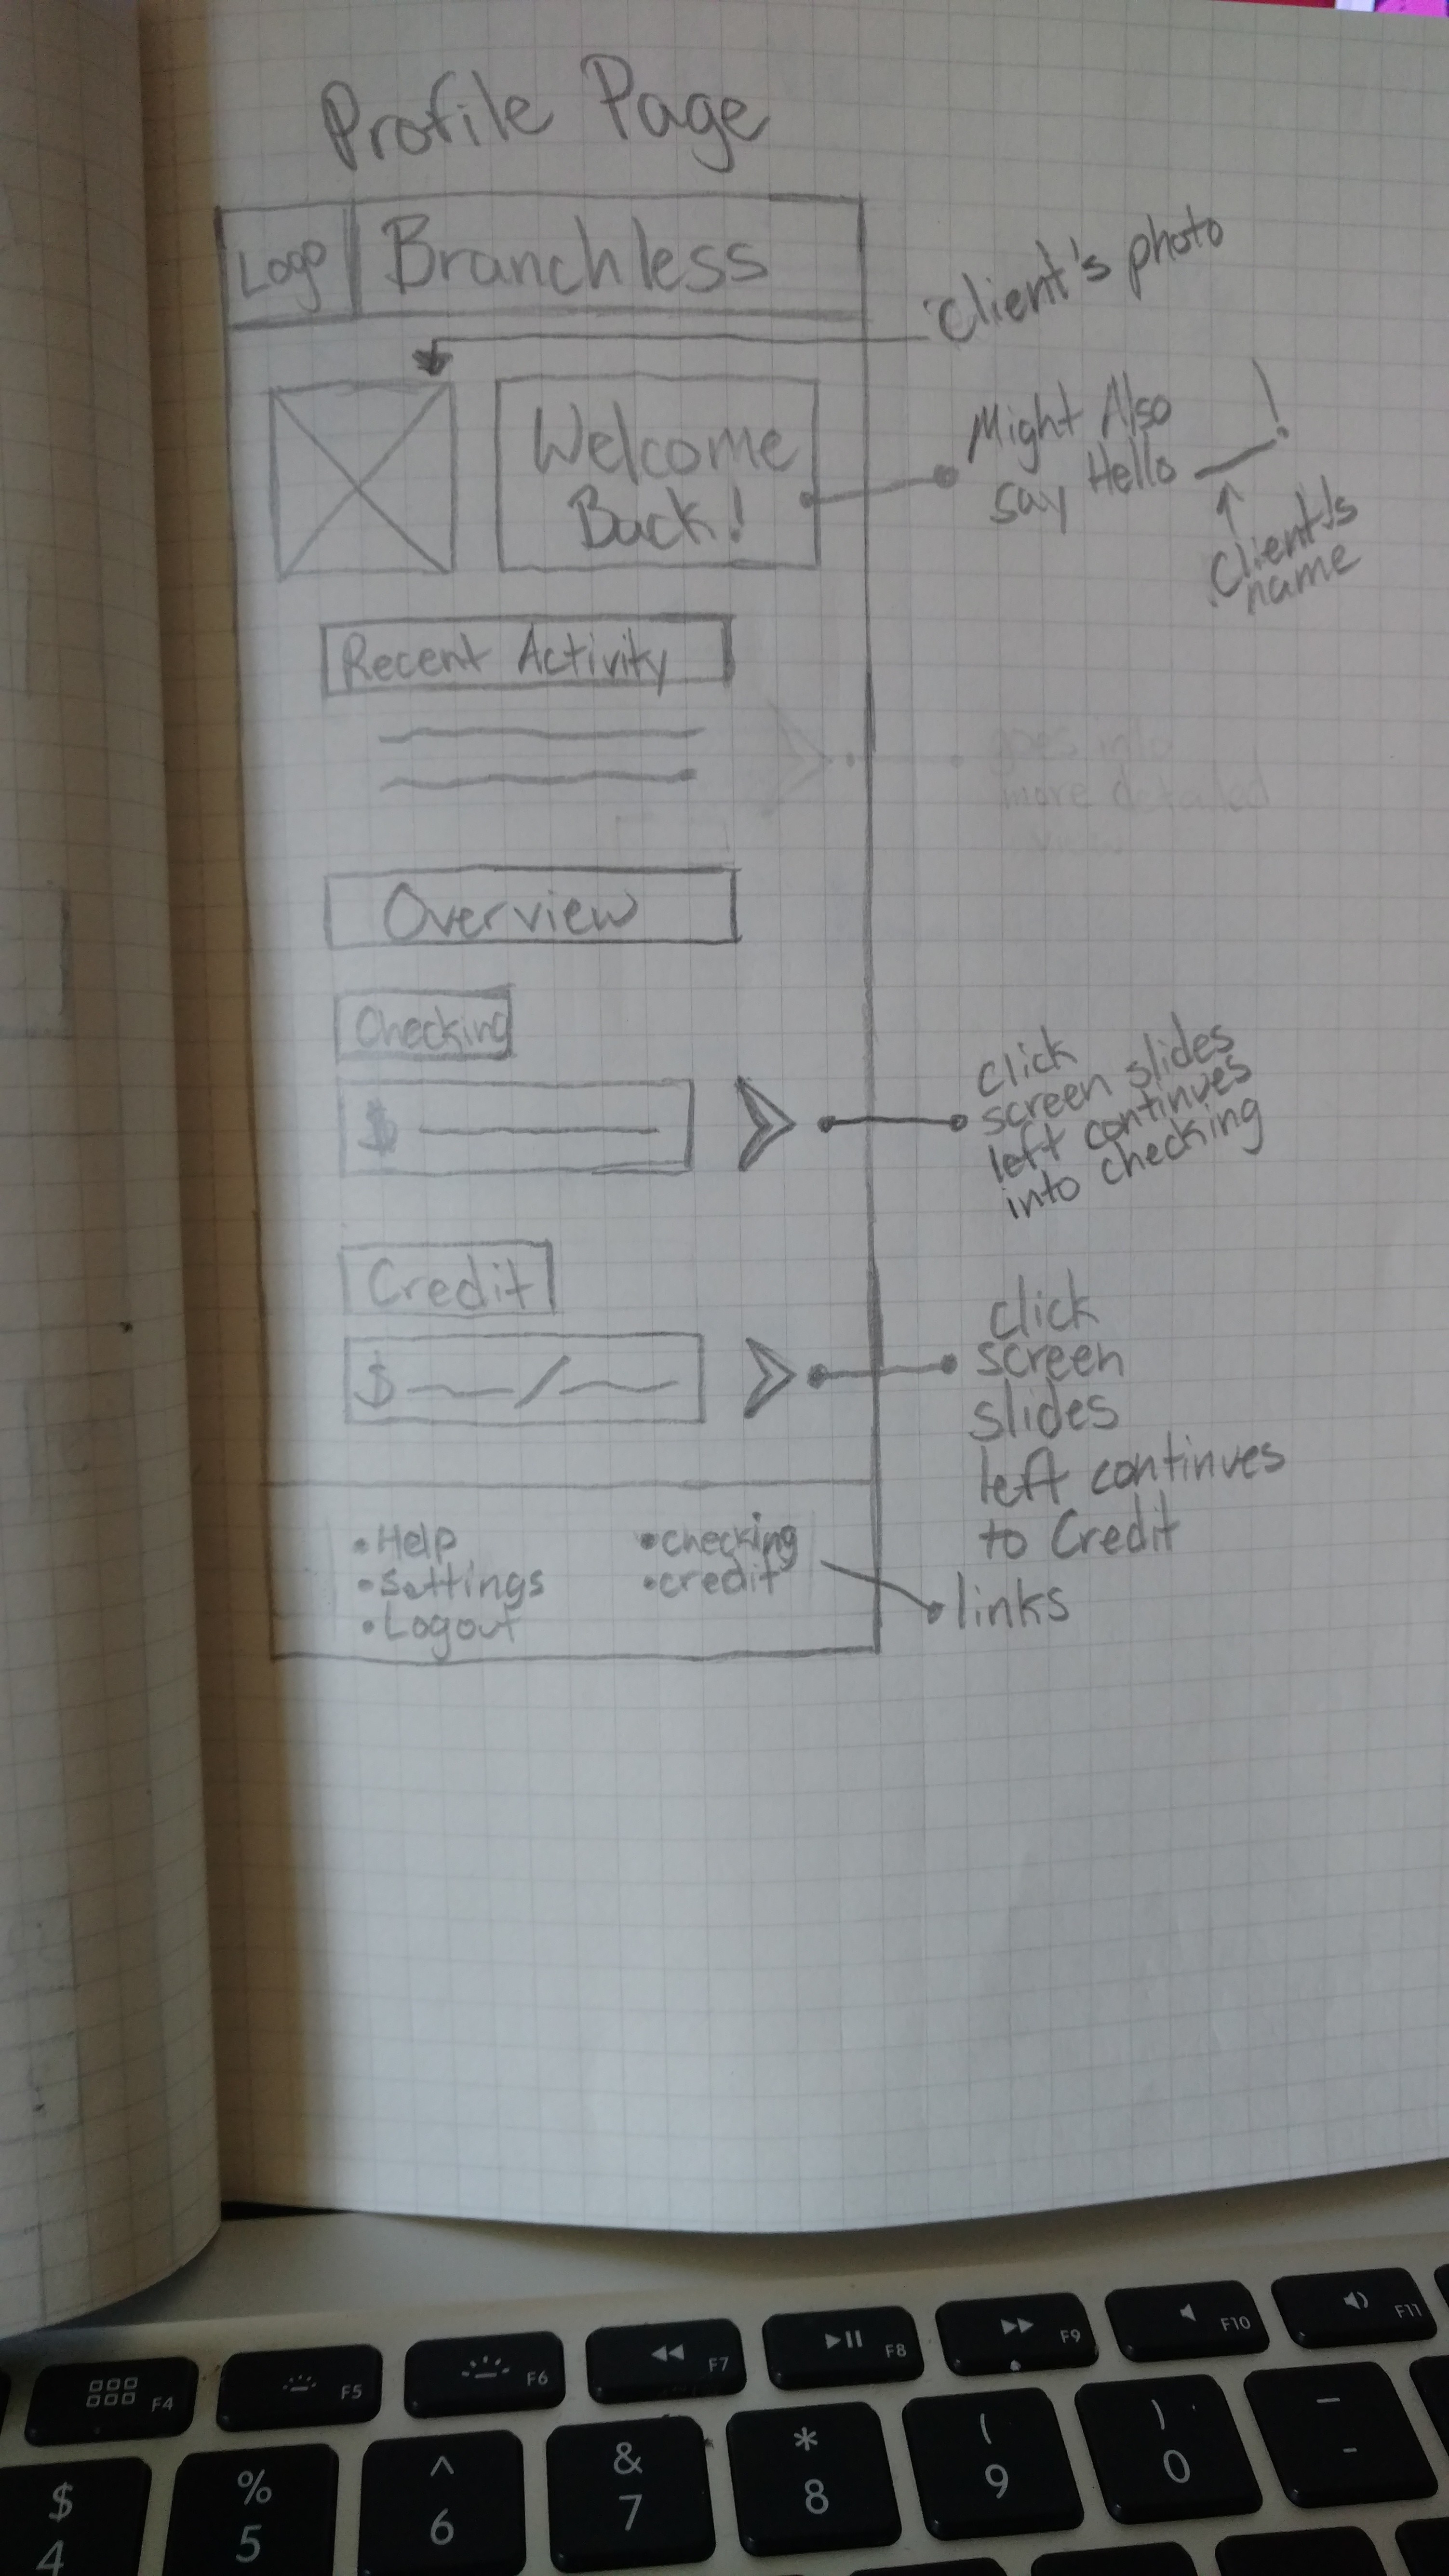 Profile Page
Logo
Branchless
client's photo
Welcome
Back!
Might Also
say Hello __!
Client's
name
Recent Activity
goes into
more detailed
view
Overview
Checking
$
click
screen slides
left continues
into checking
Credit
$ /
click
screen
slides
left continues
to Credit
•Help
•Settings
•Logout
•checking
•credit
links
F4
F5
F6
F7
F8
F9
F10
F11
$
4
%
5
^
6
&
7
*
8
(
9
)
0
–
-